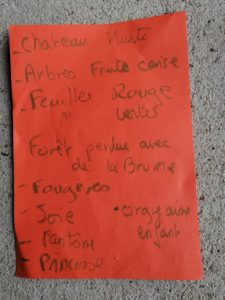 - Chateau Hanté
- Arbres Fruits
- Feuilles Rouge
" vertes
Forêt perdue avec
de la Brume
- Fougères
- Soie
• enfant
- Fantome